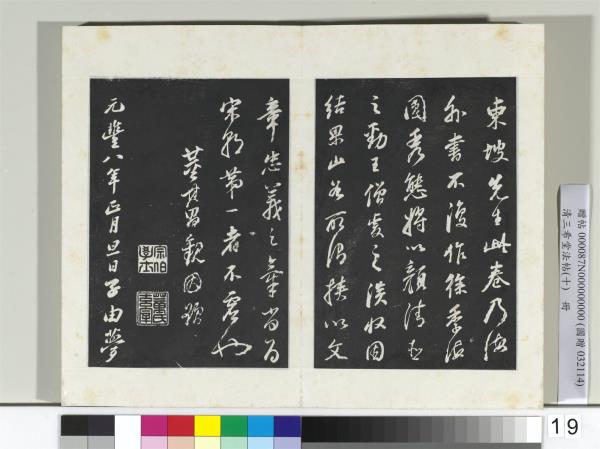 東坡先生此卷乃海
外書不復作徐季海
圓秀態將以顏清臣
之勁王僧虔之淡收因
結果山谷所謂挾以文
章忠義之氣當為
宋朝第一者不虛也
董其昌觀因題
宗伯學士
董氏玄宰
元豐八年正月旦日子由夢
贈帖 000087N000000000 (國贈 032114)
清三希堂法帖(十) 冊
19